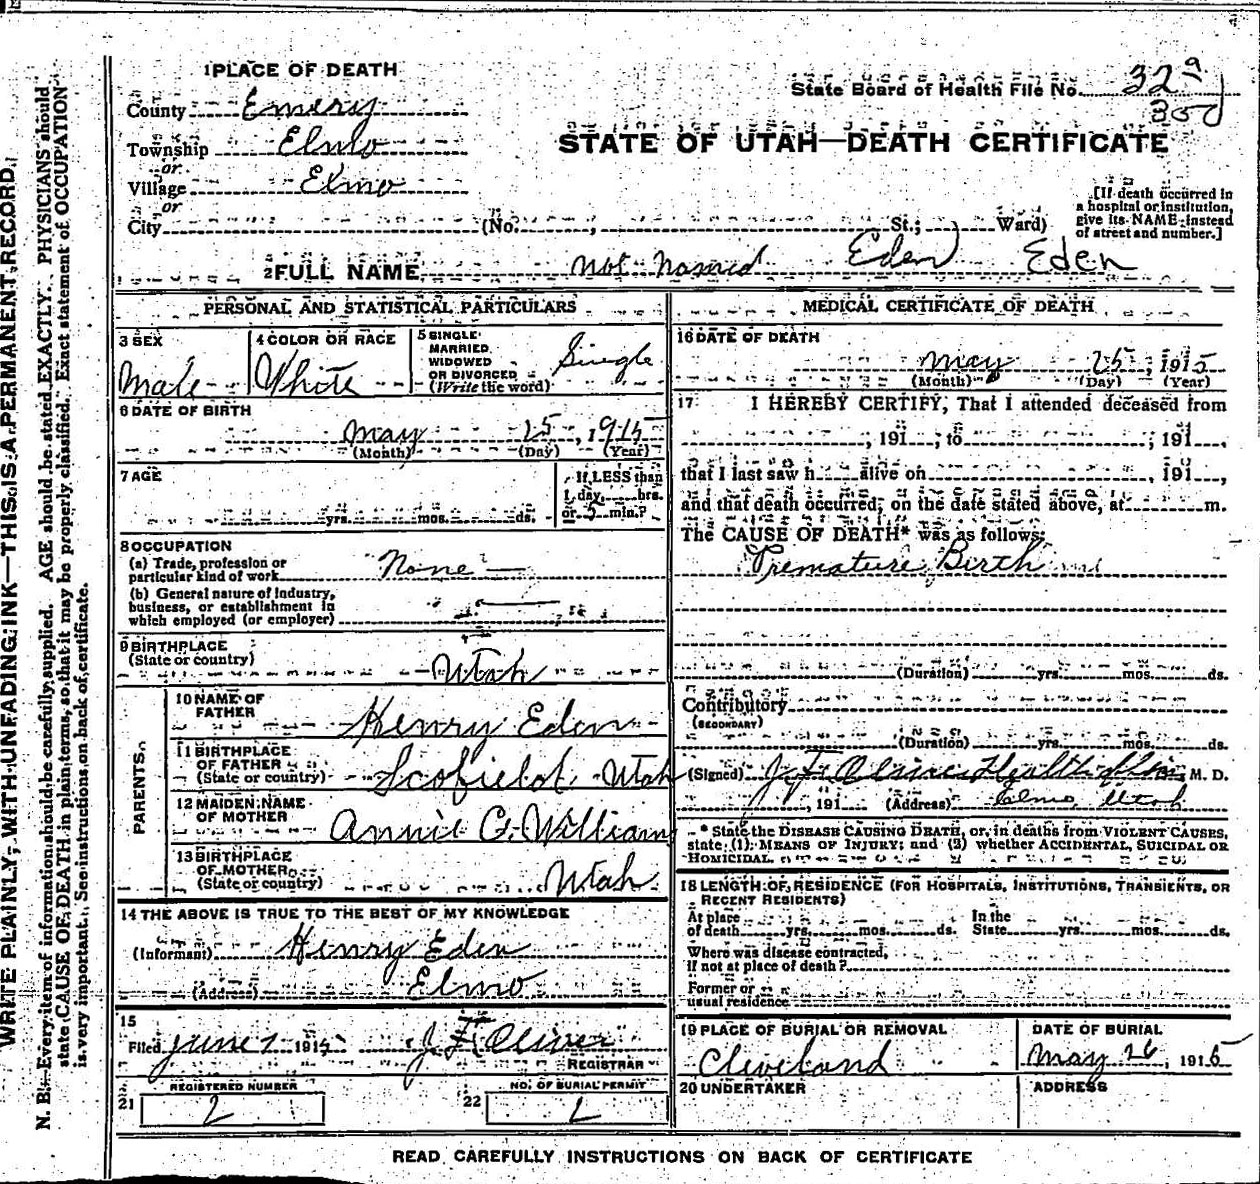 1 PLACE OF DEATH
County Emery
Township Elmo
or
Village Elmo
or
City (No. , St.; Ward)
State Board of Health File No. 32 a
350
STATE OF UTAH—DEATH CERTIFICATE
[If death occurred in
a hospital or institution,
give its NAME instead
of street and number.]
2 FULL NAME not Named Eden Eden
PERSONAL AND STATISTICAL PARTICULARS
3 SEX
Male
4 COLOR OR RACE
White
5 SINGLE
MARRIED
WIDOWED
OR DIVORCED
(Write the word)
Single
6 DATE OF BIRTH
May 25, 1915
(Month) (Day) (Year)
7 AGE
yrs. mos. ds.
If LESS than
1 day, hrs.
or 5 min.?
8 OCCUPATION
(a) Trade, profession or
particular kind of work None
(b) General nature of industry,
business, or establishment in
which employed (or employer)
9 BIRTHPLACE
(State or country)
Utah
PARENTS
10 NAME OF
FATHER
Henry Eden
11 BIRTHPLACE
OF FATHER
(State or country) Scofield, Utah
12 MAIDEN NAME
OF MOTHER
Annie C. Williams
13 BIRTHPLACE
OF MOTHER
(State or country) Utah
14 THE ABOVE IS TRUE TO THE BEST OF MY KNOWLEDGE
(Informant) Henry Eden
(Address) Elmo
15
Filed June 1 1915 J. F. Oliver
REGISTRAR
REGISTERED NUMBER
21 2
NO. OF BURIAL PERMIT
22
MEDICAL CERTIFICATE OF DEATH
16 DATE OF DEATH
May 25, 1915
(Month) (Day) (Year)
17 I HEREBY CERTIFY, That I attended deceased from
, 191 , to , 191 ,
that I last saw h alive on , 191 ,
and that death occurred, on the date stated above, at m.
The CAUSE OF DEATH* was as follows:
Premature Birth
(Duration) yrs. mos. ds.
Contributory
(SECONDARY)
(Duration) yrs. mos. ds.
(Signed) J. F. Oliver Health M. D.
, 191 (Address) Elmo Utah
* State the DISEASE CAUSING DEATH, or, in deaths from VIOLENT CAUSES,
state (1) MEANS OF INJURY; and (2) whether ACCIDENTAL, SUICIDAL OR
HOMICIDAL.
18 LENGTH OF RESIDENCE (FOR HOSPITALS, INSTITUTIONS, TRANSIENTS, OR
RECENT RESIDENTS)
At place
of death yrs. mos. ds.
In the
State yrs. mos. ds.
Where was disease contracted,
if not at place of death?
Former or
usual residence
19 PLACE OF BURIAL OR REMOVAL
Cleveland
DATE OF BURIAL
May 26, 1915
20 UNDERTAKER
ADDRESS
READ CAREFULLY INSTRUCTIONS ON BACK OF CERTIFICATE
WRITE PLAINLY, WITH UNFADING INK—THIS IS A PERMANENT RECORD.
N. B.—Every item of information should be carefully supplied. AGE should be stated EXACTLY. PHYSICIANS should
state CAUSE OF DEATH in plain terms, so that it may be properly classified. Exact statement of OCCUPATION
is very important. See instructions on back of certificate.